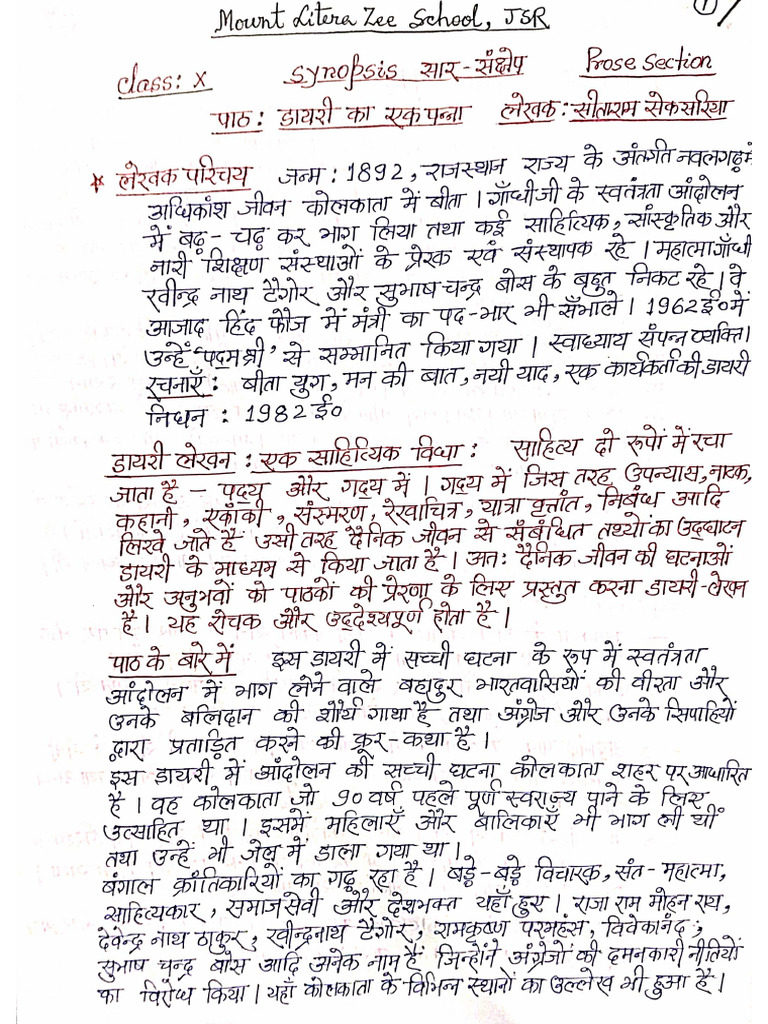 1
Mount Litera Zee School, JSR
Class: X Synopsis सार-संक्षेप Prose Section
पाठ: डायरी का एक पन्ना लेखक: सीताराम सेकसरिया
* लेखक परिचय जन्म : 1892, राजस्थान राज्य के अंतर्गत नवलगढ़ में
अधिकांश जीवन कोलकाता में बीता। गाँधीजी के स्वतंत्रता आंदोलन
में बढ़-चढ़ कर भाग लिया तथा कई साहित्यिक, सांस्कृतिक और
नारी शिक्षण संस्थाओं के प्रेरक एवं संस्थापक रहे। महात्मा गाँधी
रवीन्द्र नाथ टैगोर और सुभाष चन्द्र बोस के बहुत निकट रहे। वे
आजाद हिंद फौज में मंत्री का पद-भार भी सँभाले। 1962ई० में
उन्हें 'पद्मश्री' से सम्मानित किया गया। स्वाध्याय संपन्न व्यक्ति।
रचनाएँ: बीता युग, मन की बात, नयी याद, एक कार्यकर्ता की डायरी
निधन : 1982 ई०
डायरी लेखन : एक साहित्यिक विधा : साहित्य दो रूपों में रचा
जाता है – पद्य और गद्य में। गद्य में जिस तरह उपन्यास, नाटक,
कहानी, एकाँकी, संस्मरण, रेखाचित्र, यात्रा वृत्तांत, निबंध आदि
लिखे जाते हैं उसी तरह दैनिक जीवन से संबंधित तथ्यों का उद्घाटन
डायरी के माध्यम से किया जाता है। अतः दैनिक जीवन की घटनाओं
और अनुभवों को पाठकों की प्रेरणा के लिए प्रस्तुत करना डायरी-लेखन
है। यह रोचक और उद्देश्यपूर्ण होता है।
पाठ के बारे में इस डायरी में सच्ची घटना के रूप में स्वतंत्रता
आंदोलन में भाग लेने वाले बहादुर भारतवासियों की वीरता और
उनके बलिदान की शौर्य गाथा है तथा अंग्रेज और उनके सिपाहियों
द्वारा प्रताड़ित करने की क्रूर-कथा है।
इस डायरी में आंदोलन की सच्ची घटना कोलकाता शहर पर आधारित
है। वह कोलकाता जो 90 वर्ष पहले पूर्ण स्वराज्य पाने के लिए
उत्साहित था। इसमें महिलाएँ और बालिकाएँ भी भाग ली थीं
तथा उन्हें भी जेल में डाला गया था।
बंगाल क्रांतिकारियों का गढ़ रहा है। बड़े-बड़े विचारक, संत-महात्मा,
साहित्यकार, समाजसेवी और देशभक्त यहाँ हुए। राजा राम मोहन राय,
देवेन्द्र नाथ ठाकुर, रवीन्द्रनाथ टैगोर, रामकृष्ण परमहंस, विवेकानंद,
सुभाष चन्द्र बोस आदि अनेक नाम हैं जिन्होंने अंग्रेजों की दमनकारी नीतियों
का विरोध किया। यहाँ कोलकाता के विभिन्न स्थानों का उल्लेख भी हुआ है।